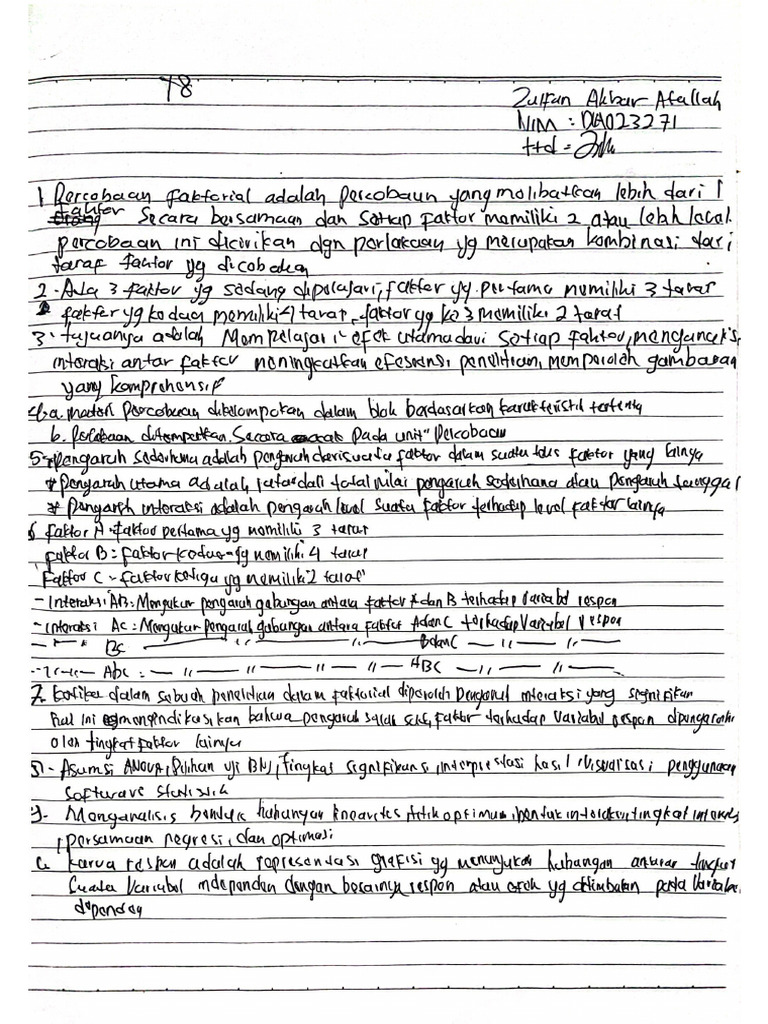 78
Zulfan Akbar Atallah
NIM : DIA023271
ttd =
1 Percobaan faktorial adalah percobaan yang melibatkan lebih dari 1
faktor secara bersamaan dan setiap faktor memiliki 2 atau lebih level.
percobaan ini dicirikan dgn perlakuan yg merupakan kombinasi dari
taraf faktor yg dicobakan
2. Ada 3 faktor yg sedang dipelajari, faktor yg pertama memiliki 3 taraf
faktor yg kedua memiliki 4 taraf, faktor yg ke 3 memiliki 2 taraf
3. tujuanya adalah Mempelajari efek utama dari setiap faktor, menganalisis
interaksi antar faktor meningkatkan efesiensi penelitian, memperoleh gambaran
yang komprehensif
4. a. materi percobaan dikelompokan dalam blok berdasarkan karakteristik tertentu
b. Perlakuan ditempatkan secara acak pada unit" percobaan
5. pengaruh sederhana adalah pengaruh dari suatu faktor dalam suatu taraf faktor yang lainya
* Pengaruh utama adalah, rataan dari total nilai pengaruh sederhana atau pengaruh tunggal
* Pengaruh interaksi adalah pengaruh level suatu faktor terhadap level faktor lainya
6 faktor A = faktor pertama yg memiliki 3 taraf
faktor B = faktor kedua yg memiliki 4 taraf
Faktor C = faktor ketiga yg memiliki 2 taraf
- Interaksi AB = Mengukur pengaruh gabungan antara faktor A dan B terhadap variabel respon
- Interaksi AC = Mengukur pengaruh gabungan antara faktor A dan C terhadap variabel respon
- " - BC — " — " — B dan C — " —
- " - ABC = — " — " — " — ABC — " — " — " —
7. ketika dalam sebuah penelitian dalam faktorial diperoleh pengaruh interaksi yang signifikan
hal ini mengindikasikan bahwa pengaruh salah satu faktor terhadap variabel respon dipengaruhi
oleh tingkat faktor lainya
8. Asumsi ANOVA, pilihan uji BNJ, tingkat signifikansi, interprestasi hasil, visualisasi, penggunaan
software statistik
9. Menganalisis bentuk hubungan linearitas, titik optimum, bentuk interaksi, tingkat interaksi,
persamaan regresi, dan optimasi
kurva respon adalah representasi grafisi yg menunjukan hubungan antara tingkat
suatu variabel independen dengan besarnya respon atau efek yg ditimbulkan pada variabel
dependen